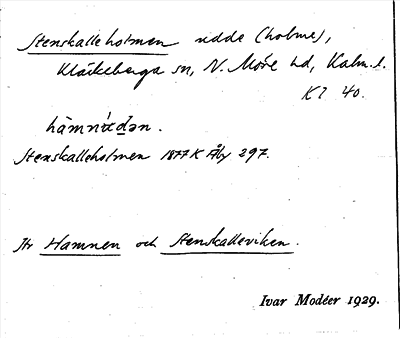 Stenskalleholmen udde (holme),
Kläckeberga sn, N. Möre hd, Kalm. l.
Kl 40.
hämnɩdən.
Stenskalleholmen 1877 K Åby 297.
Jfr Hamnen och Stenskalleviken.
Ivar Modéer 1929.